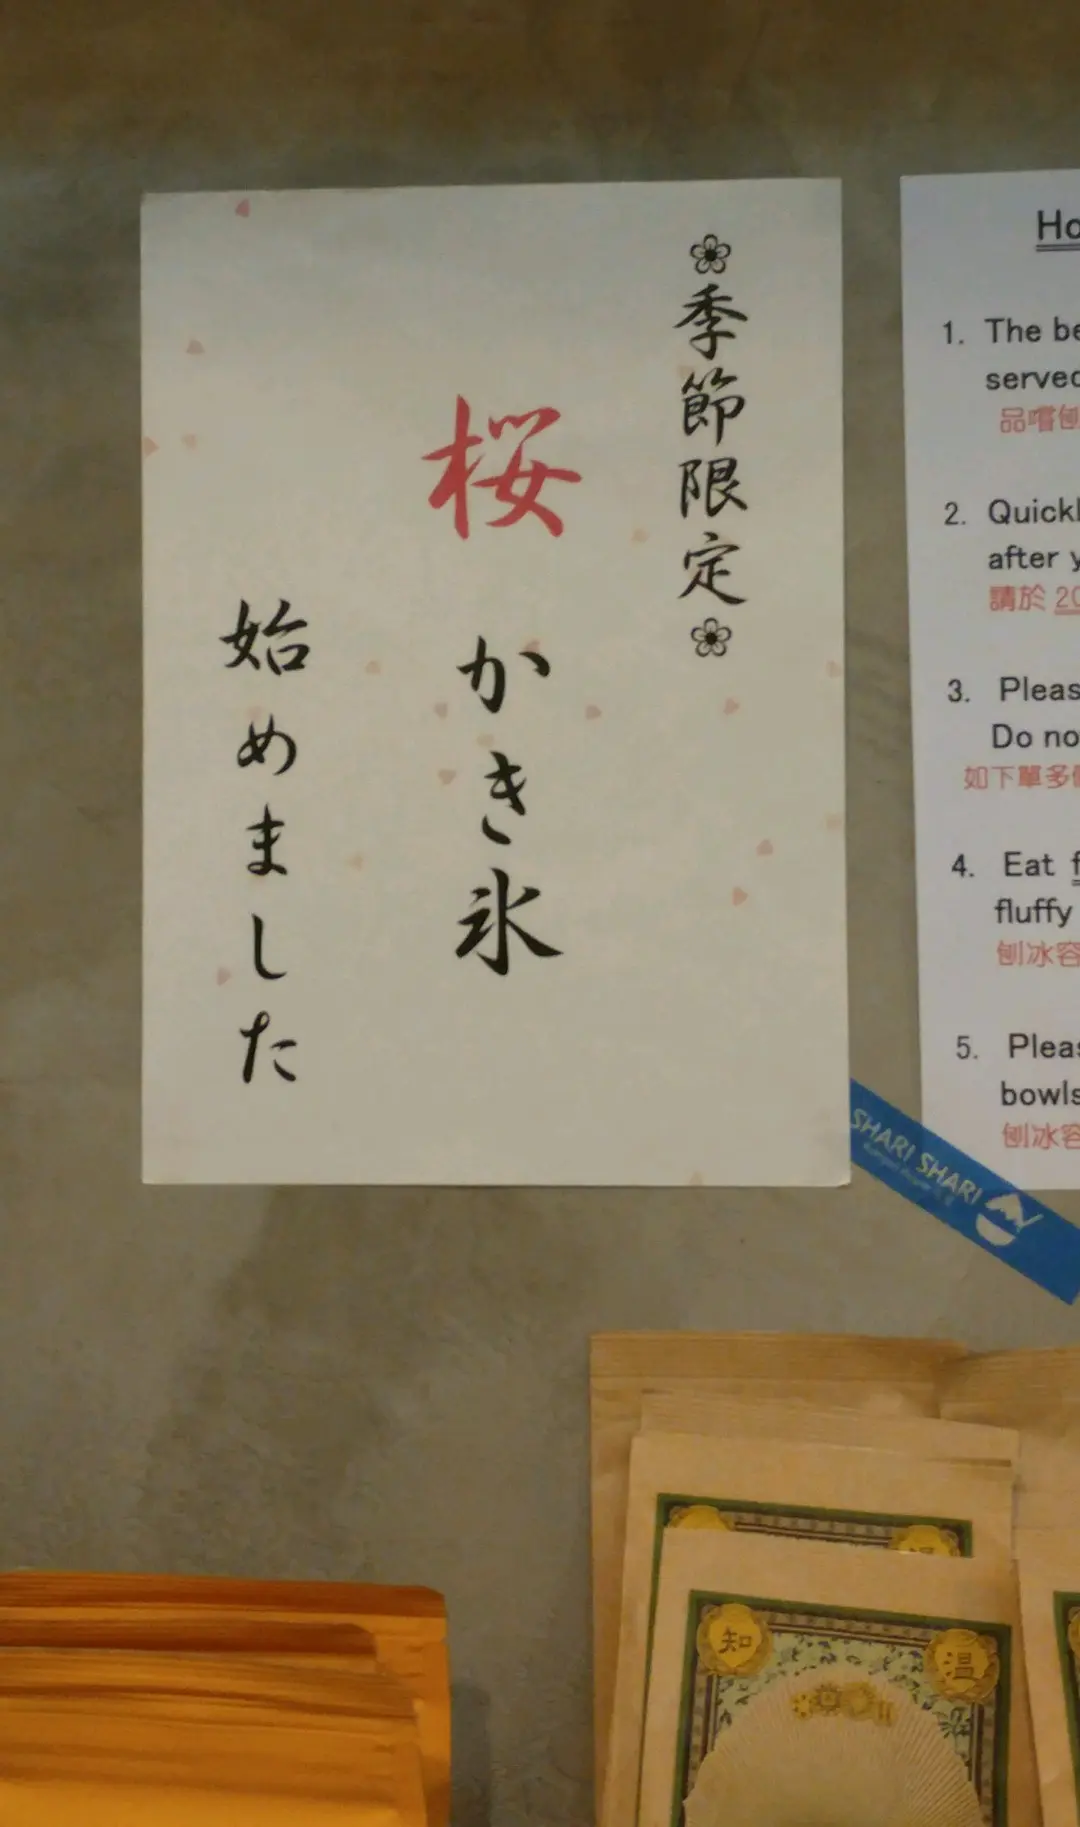 ❀季節限定❀
桜 かき氷
始めました
Ho
1. The be
served
品嚐刨
2. Quickl
after y
請於 20
3. Pleas
Do no
如下單多
4. Eat f
fluffy
刨冰容
5. Pleas
bowls
刨冰容
SHARI SHARI
知
溫